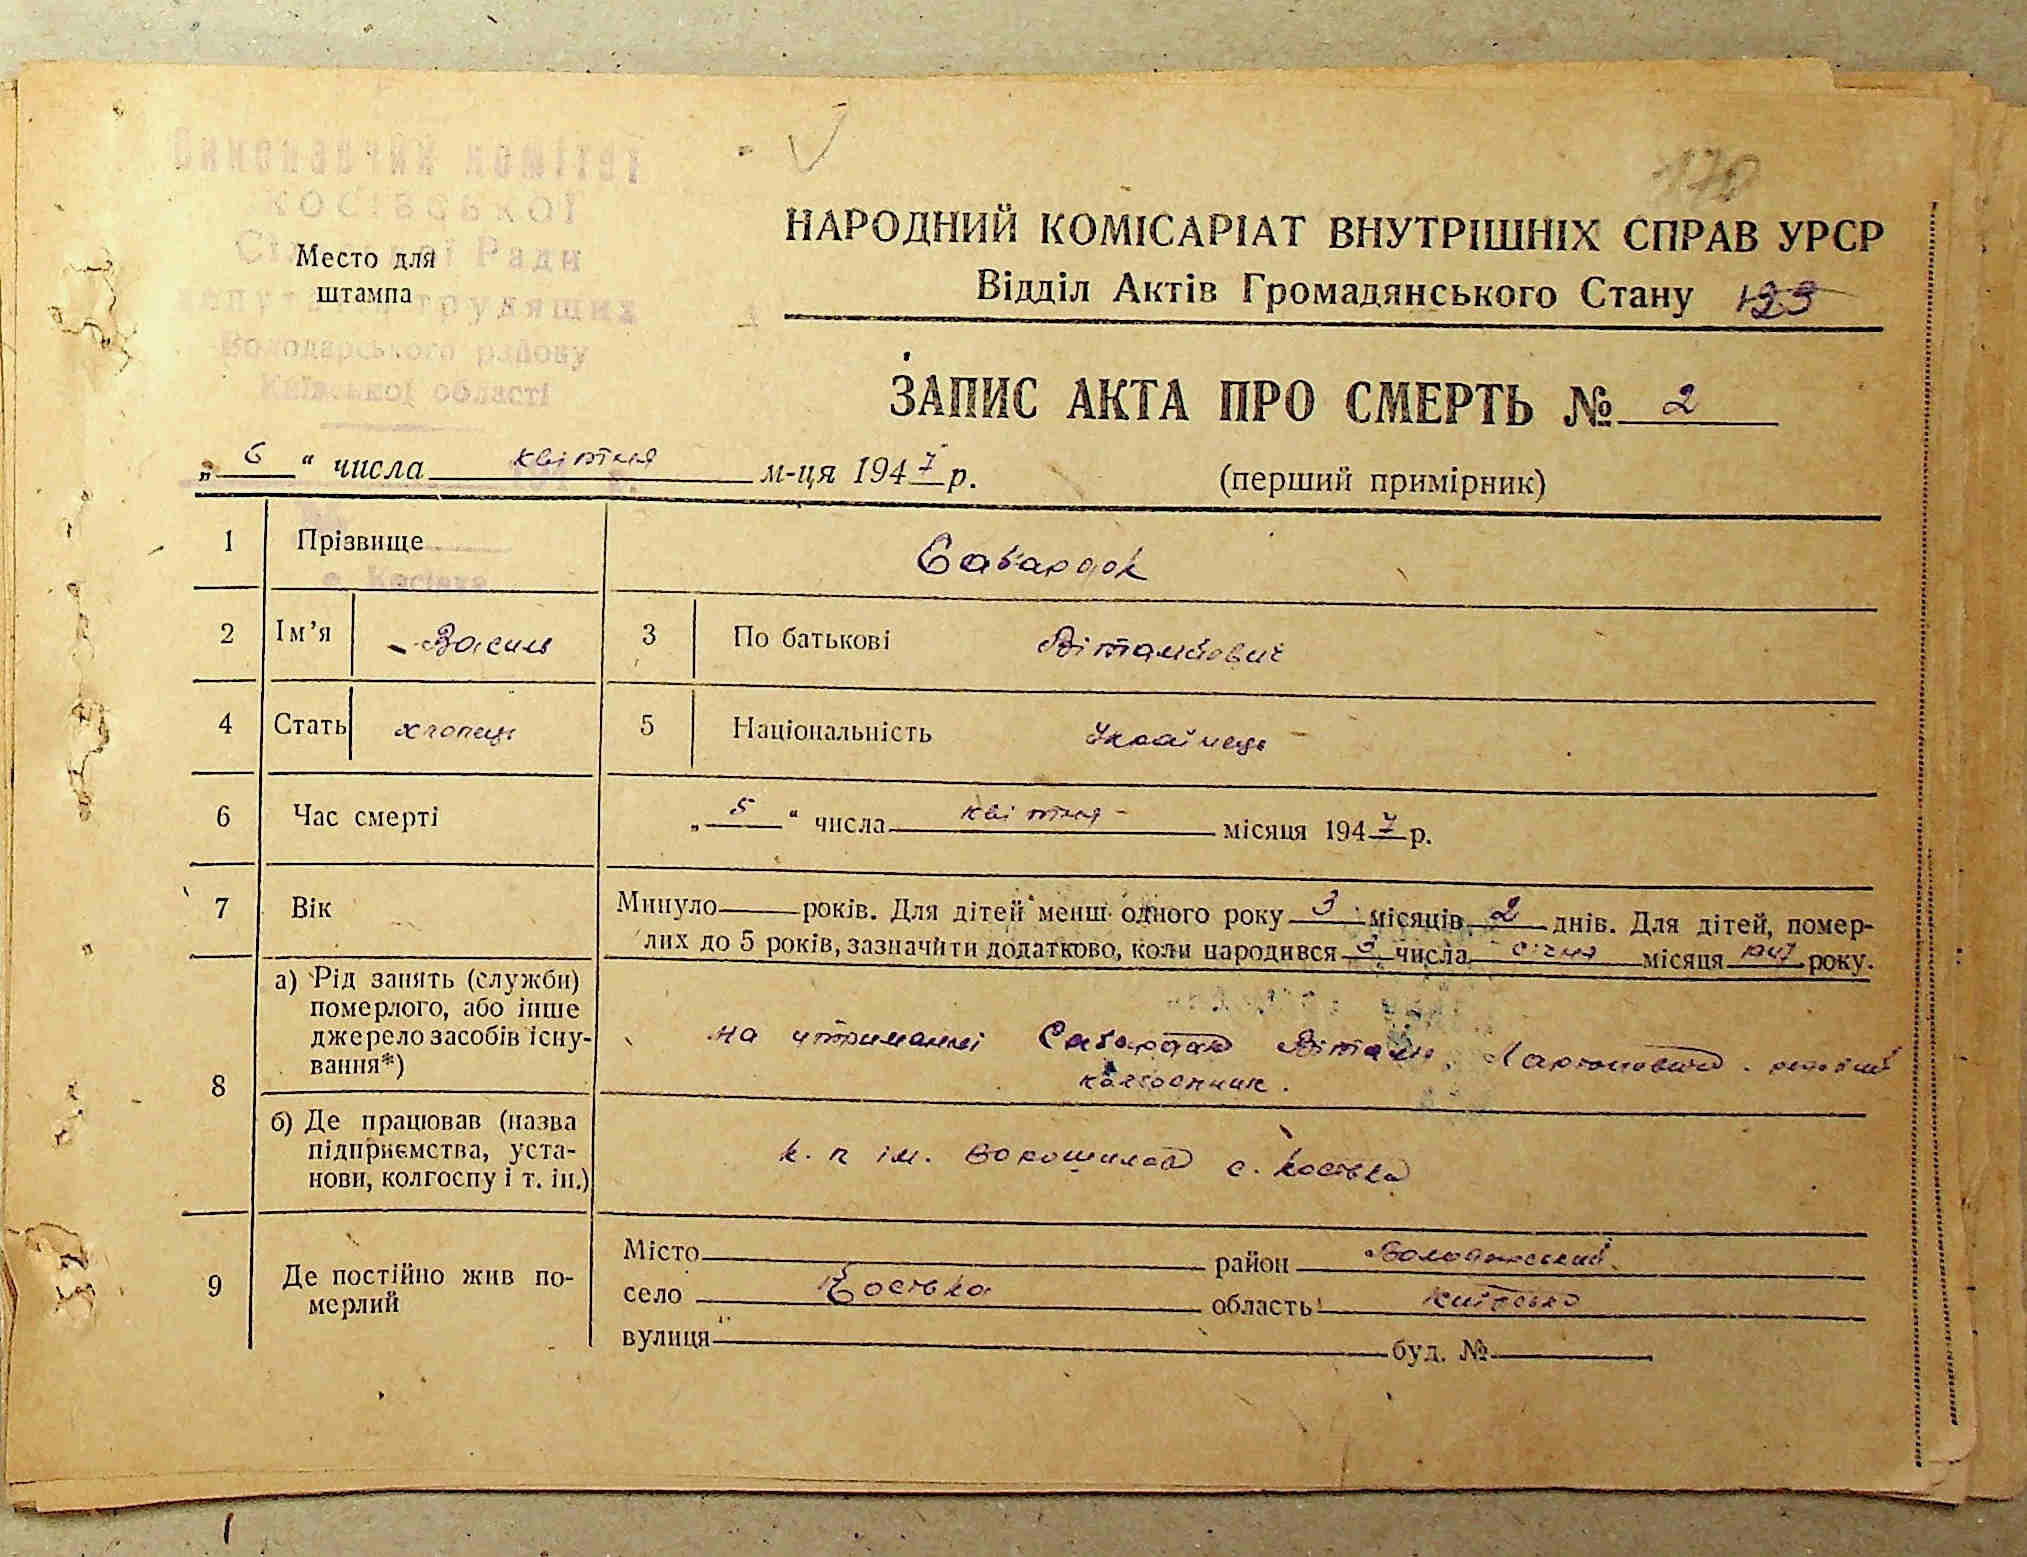 Виконавчий комітет
КОСІВСЬКОЇ
Сільської Ради
депутатів трудящих
Володарського району
Київської області
с. Косівка
Место для
штампа
170
НАРОДНИЙ КОМІСАРІАТ ВНУТРІШНІХ СПРАВ УРСР
Відділ Актів Громадянського Стану 123
ЗАПИС АКТА ПРО СМЕРТЬ № 2
„ 6 “ числа квітня м-ця 1947 р. (перший примірник)
1 Прізвище Савардак
2 Ім’я Василь 3 По батькові Віталійович
4 Стать хлопець 5 Національність Українець
6 Час смерті „ 5 “ числа квітня місяця 1947 р.
7 Вік Минуло років. Для дітей менш одного року 3 місяців 2 днів. Для дітей, помер-
лих до 5 років, зазначити додатково, коли народився 3 числа січня місяця 1947 року.
8 а) Рід занять (служби)
померлого, або інше
джерело засобів існу-
вання*)
на утриманні Савардак Віталій
колгоспник.
б) Де працював (назва
підприємства, уста-
нови, колгоспу і т. ін.)
к. п ім. Ворошилова с. Косівка
9 Де постійно жив по-
мерлий
Місто район Володарський
село Косівка область Київська
вулиця буд. №